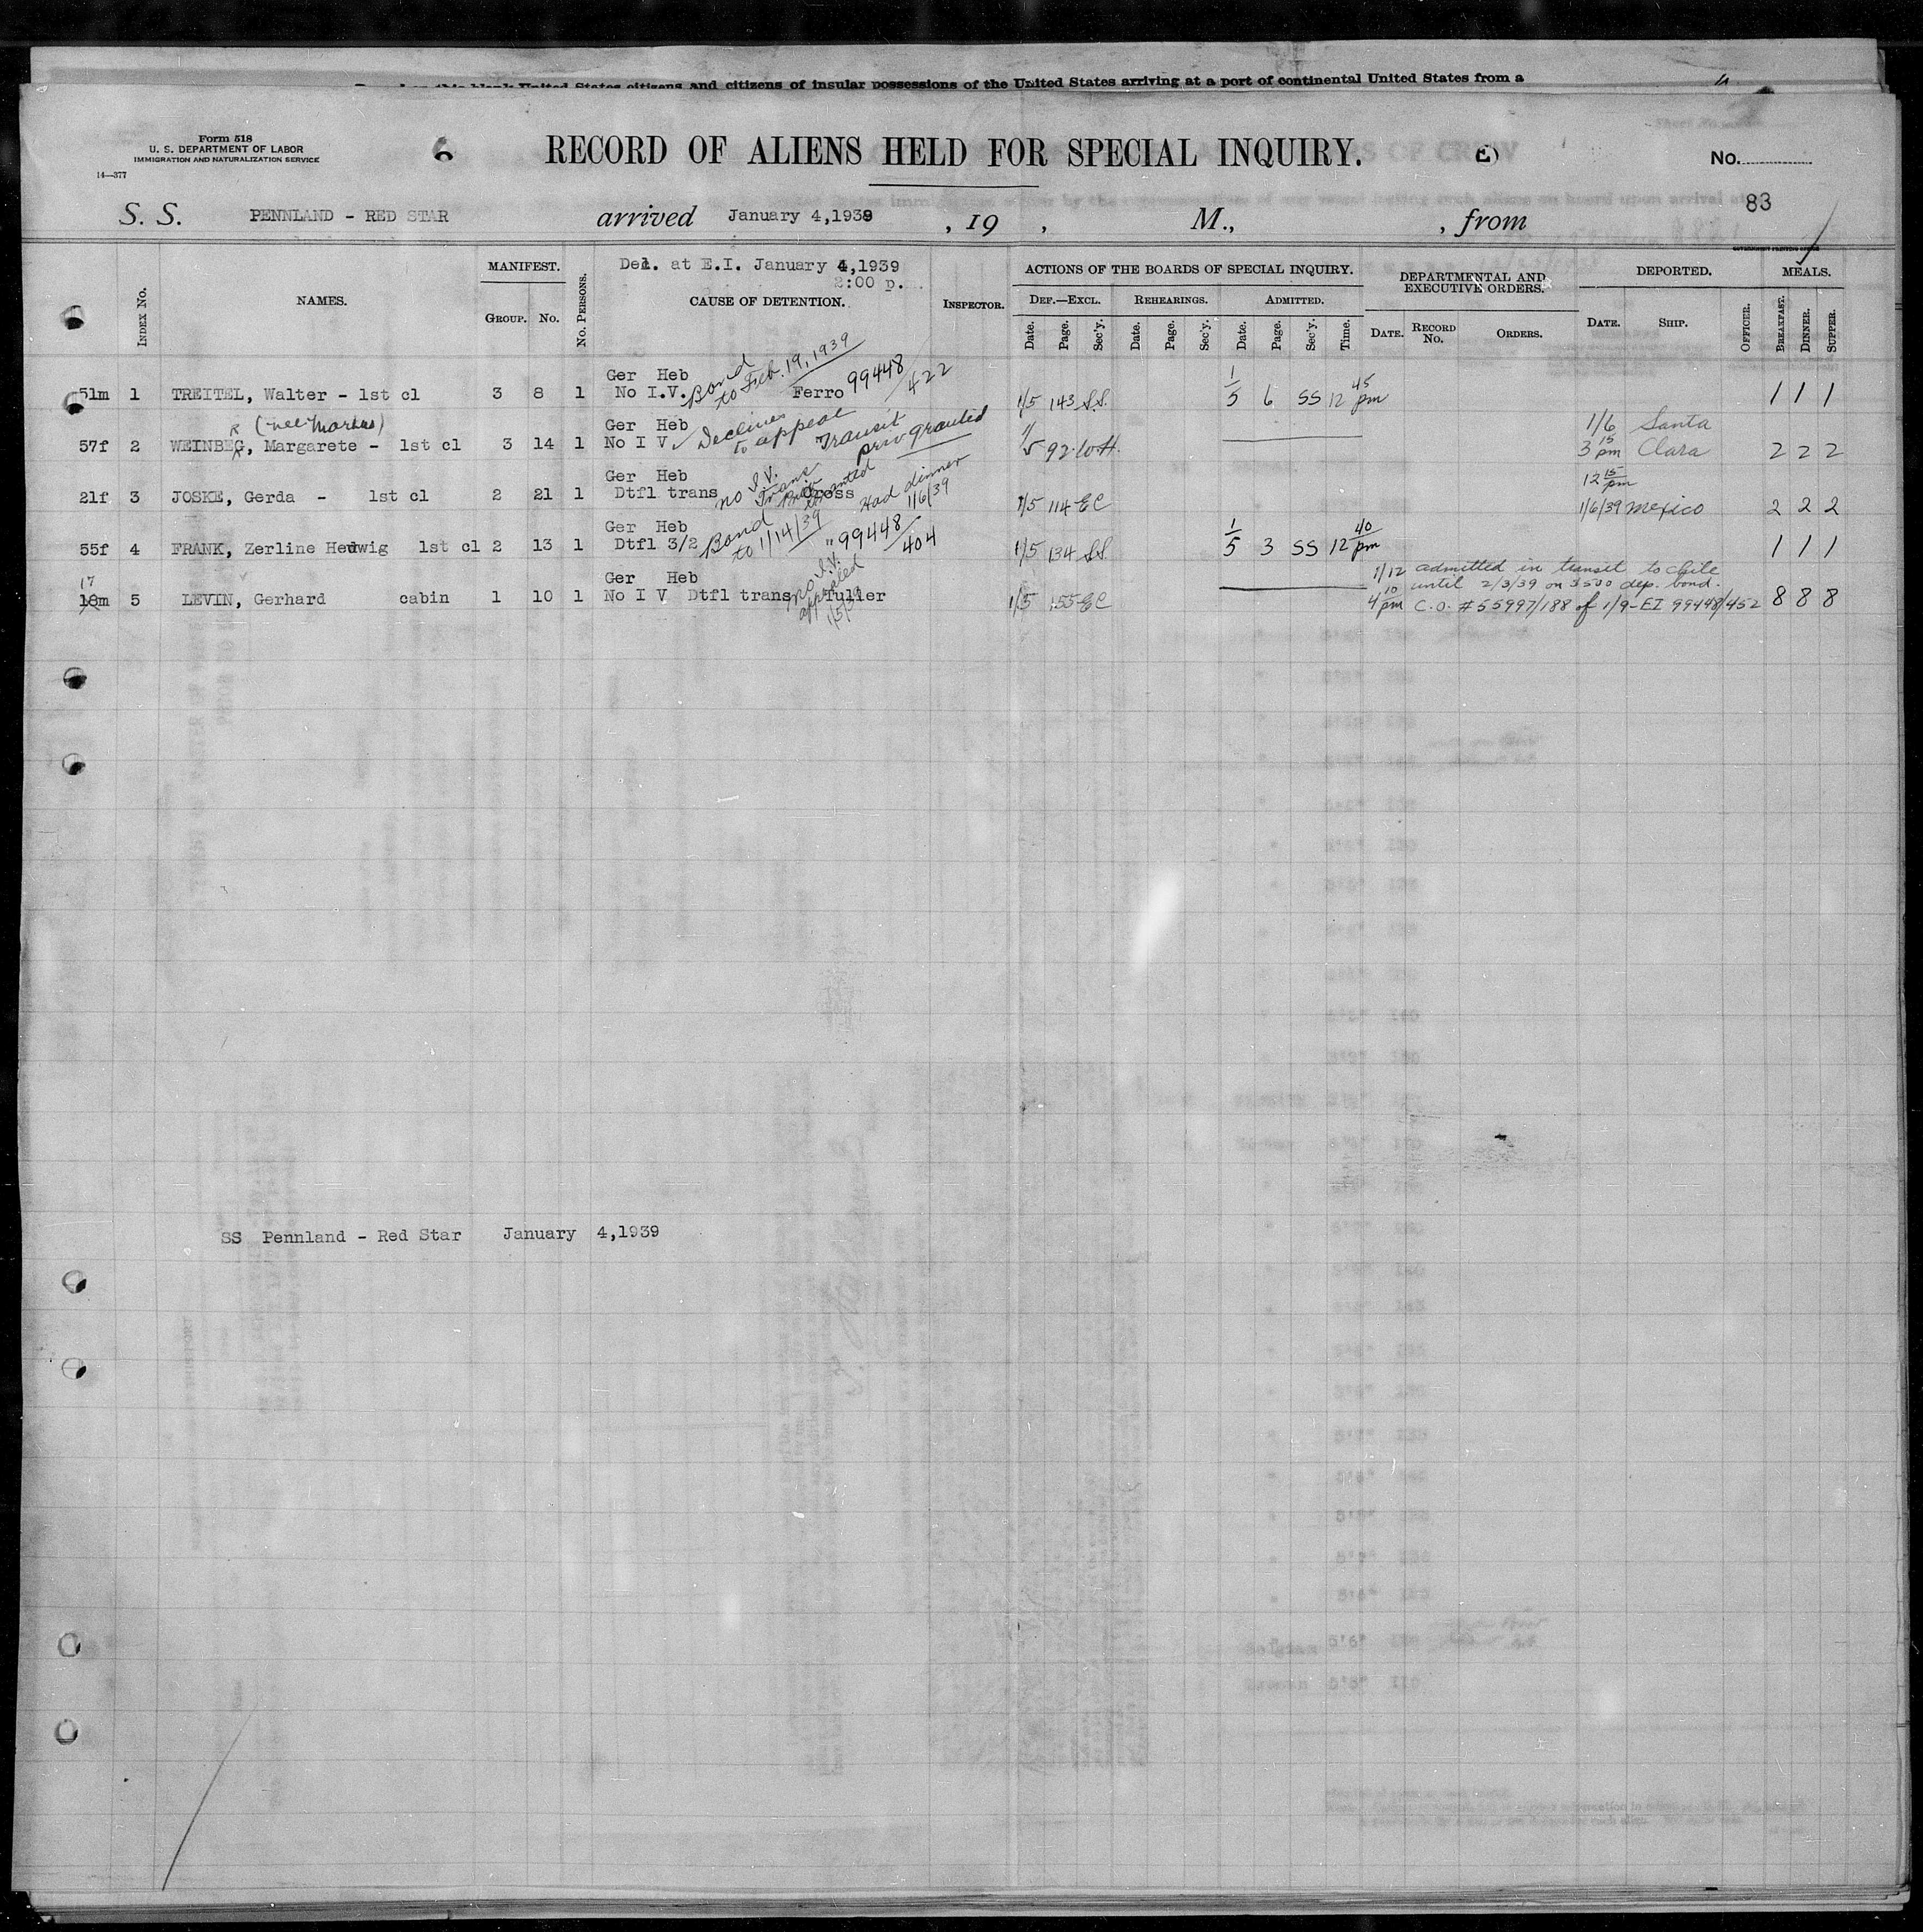 United States citizens and citizens of insular possessions of the United States arriving at a port of continental United States from a
Form 518
U. S. DEPARTMENT OF LABOR
IMMIGRATION AND NATURALIZATION SERVICE
14—377
RECORD OF ALIENS HELD FOR SPECIAL INQUIRY.
No.
83
S. S. PENNLAND - RED STAR arrived January 4,1939 , 19 , M., , from
GOVERNMENT PRINTING OFFICE
INDEX NO.
NAMES.
MANIFEST.
GROUP. NO.
NO. PERSONS.
Del. at E.I. January 4,1939
2:00 p.
CAUSE OF DETENTION.
INSPECTOR.
ACTIONS OF THE BOARDS OF SPECIAL INQUIRY.
DEF.—EXCL. REHEARINGS. ADMITTED.
Date. Page. Sec'y. Date. Page. Sec'y. Date. Page. Sec'y. Time.
DEPARTMENTAL AND
EXECUTIVE ORDERS.
DATE. RECORD NO. ORDERS.
DEPORTED.
DATE. SHIP.
OFFICER.
MEALS.
BREAKFAST. DINNER. SUPPER.
Ger Heb Bond to Feb. 19, 1939
51m 1 TREITEL, Walter - 1st cl 3 8 1 No I.V. Ferro 99448/422 1/5 143 S.S. 1/5 6 SS 12 45 pm 1 1 1
(nee Markus)
Ger Heb Declines to appeal Transit priv granted 1/6 Santa
57f 2 WEINBEG, Margarete - 1st cl 3 14 1 No I V 1/5 92 3 15 pm Clara 2 2 2
R
Ger Heb no I.V. Trans Priv Granted Had dinner 1/6/39 12 15 pm
21f 3 JOSKE, Gerda - 1st cl 2 21 1 Dtfl trans Gross 1/5 114 EC 1/6/39 Mexico 2 2 2
Ger Heb Bond to 1/14/39
55f 4 FRANK, Zerline Hedwig 1st cl 2 13 1 Dtfl 3/2 " 99448/404 1/5 134 S.S. 1/5 3 SS 12 40 pm 1 1 1
17 Ger Heb no I.V. appealed 1/5/39 1/12 admitted in transit to Chile
until 2/3/39 on $500 dep. bond.
18m 5 LEVIN, Gerhard cabin 1 10 1 No I V Dtfl trans Tuller 1/5 155 EC 4 10 pm C.O. #55997/188 of 1/9-EI 99448/452 8 8 8
SS Pennland - Red Star January 4,1939